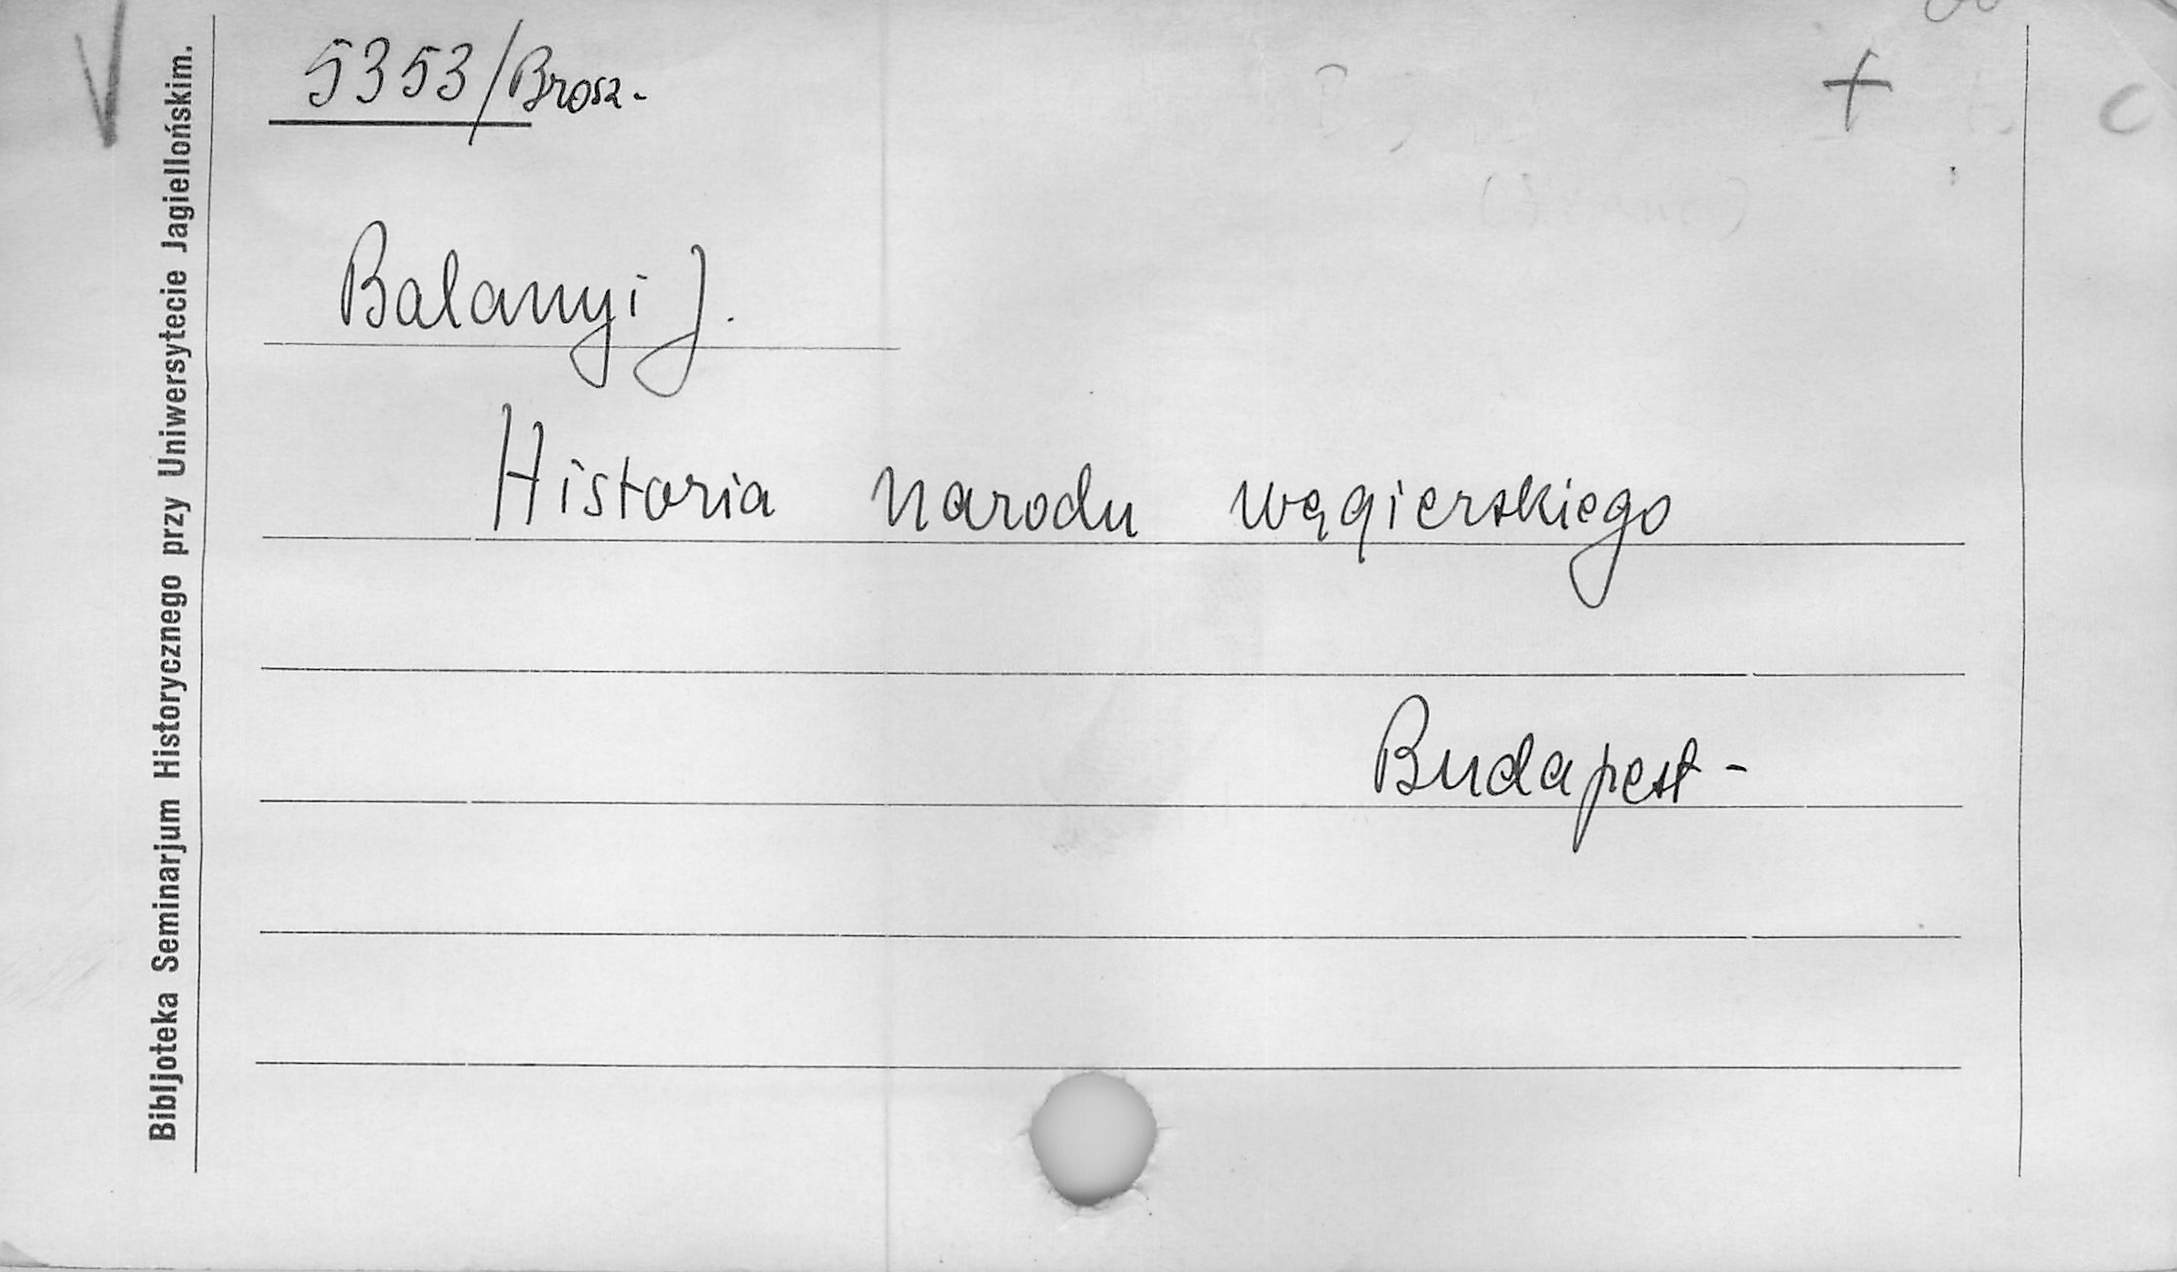 5353/Brosz.
Balanyi J.
Historia narodu węgierskiego
Budapest -
Bibljoteka Seminarjum Historycznego przy Uniwersytecie Jagiellońskim.